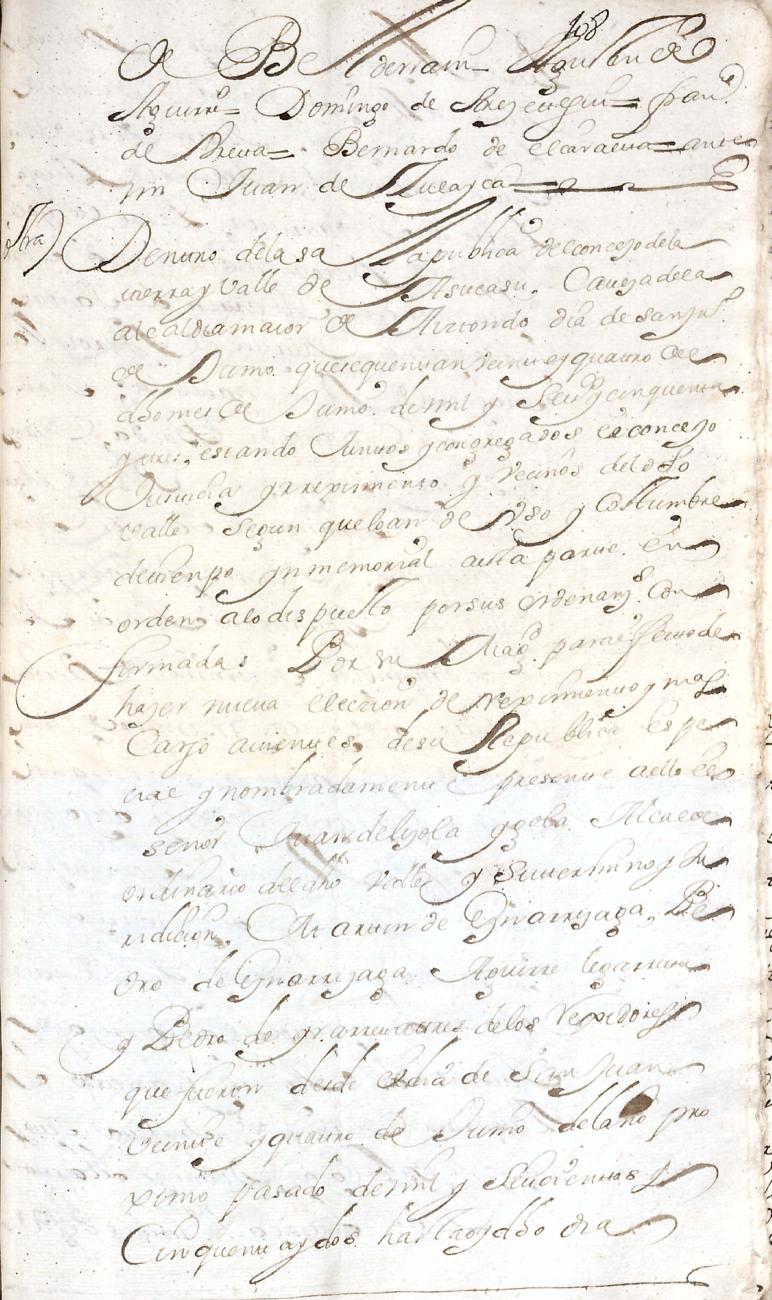 108
de
Aguirre= Domingo de = fran.co
de = Bernardo de = ante
mi Juan de
otra) Dentro de la sa la publica del concejo de la
tierra y valle de Asteasu, Caveça de la
alcaldia maior de Aiztondo dia de san Jun
de Junio que se quentan veinte y quatro de
dho mes de Junio de mil y seisos y cinquenta
y tres, estando Juntos y congregados el concejo
Justicia y rrexim.to y vecinos del dho
valle segun que lo an de vso y Costumbre
de tienpo ynmemorial a esta parte. en
orden a lo dispuesto por sus ordenanças con
firmadas Por su Magd para efecto de
hazer nueva eleccion de rreximiento y mas
Cargo avientes de su Republica espe
cial y nombradamente presente a ello el
señor Juan de lizola y goba Alcalde
ordinario del dho Valle y su termino y Ju
ridicion, Martin de Ynarryaga, Pe
dro de Ynarryaga Aguirre legarreta
y Pedro de de los rrexidores
que fueron desde el dia de San Juan
Veinte y quatro de Junio del año pro
ximo pasado de mil y seiscientos y
Cinquenta y dos hasta oy dho dia